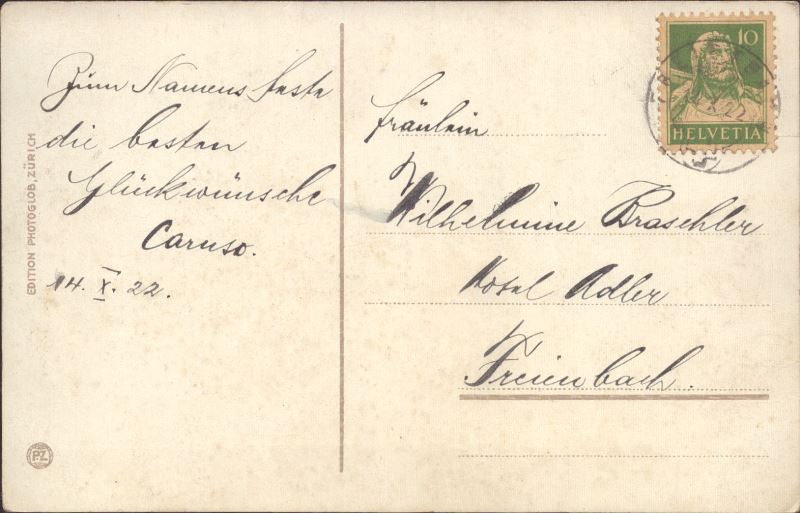 Zum Namensfeste
die besten
Glückwünsche
Caruso.
14. X. 22.
EDITION PHOTOGLOB, ZÜRICH
PZ
10
HELVETIA
X.22
Fräulein
Wilhelmine Braschler
Hotel Adler
Freienbach.